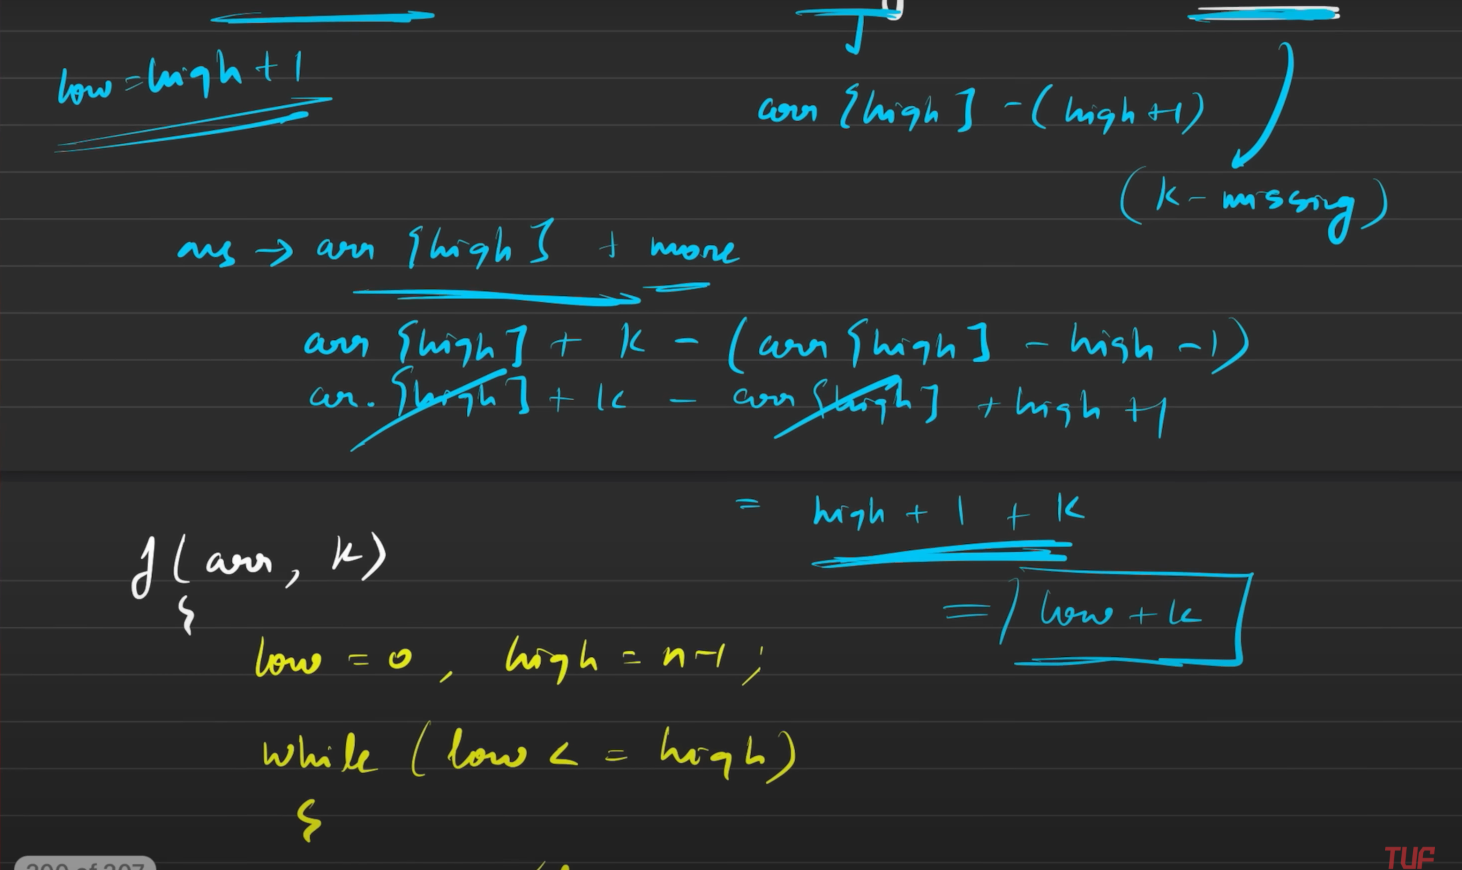 low = high + 1
arr [high] - (high + 1)
(k - missing)
ans → arr [high] + more
arr [high] + k - (arr [high] - high - 1)
ar. [high] + k - arr [high] + high + 1
= high + 1 + k
f(arr, k)
{
= low + k
low = 0, high = n-1;
while (low < = high)
{
TUF